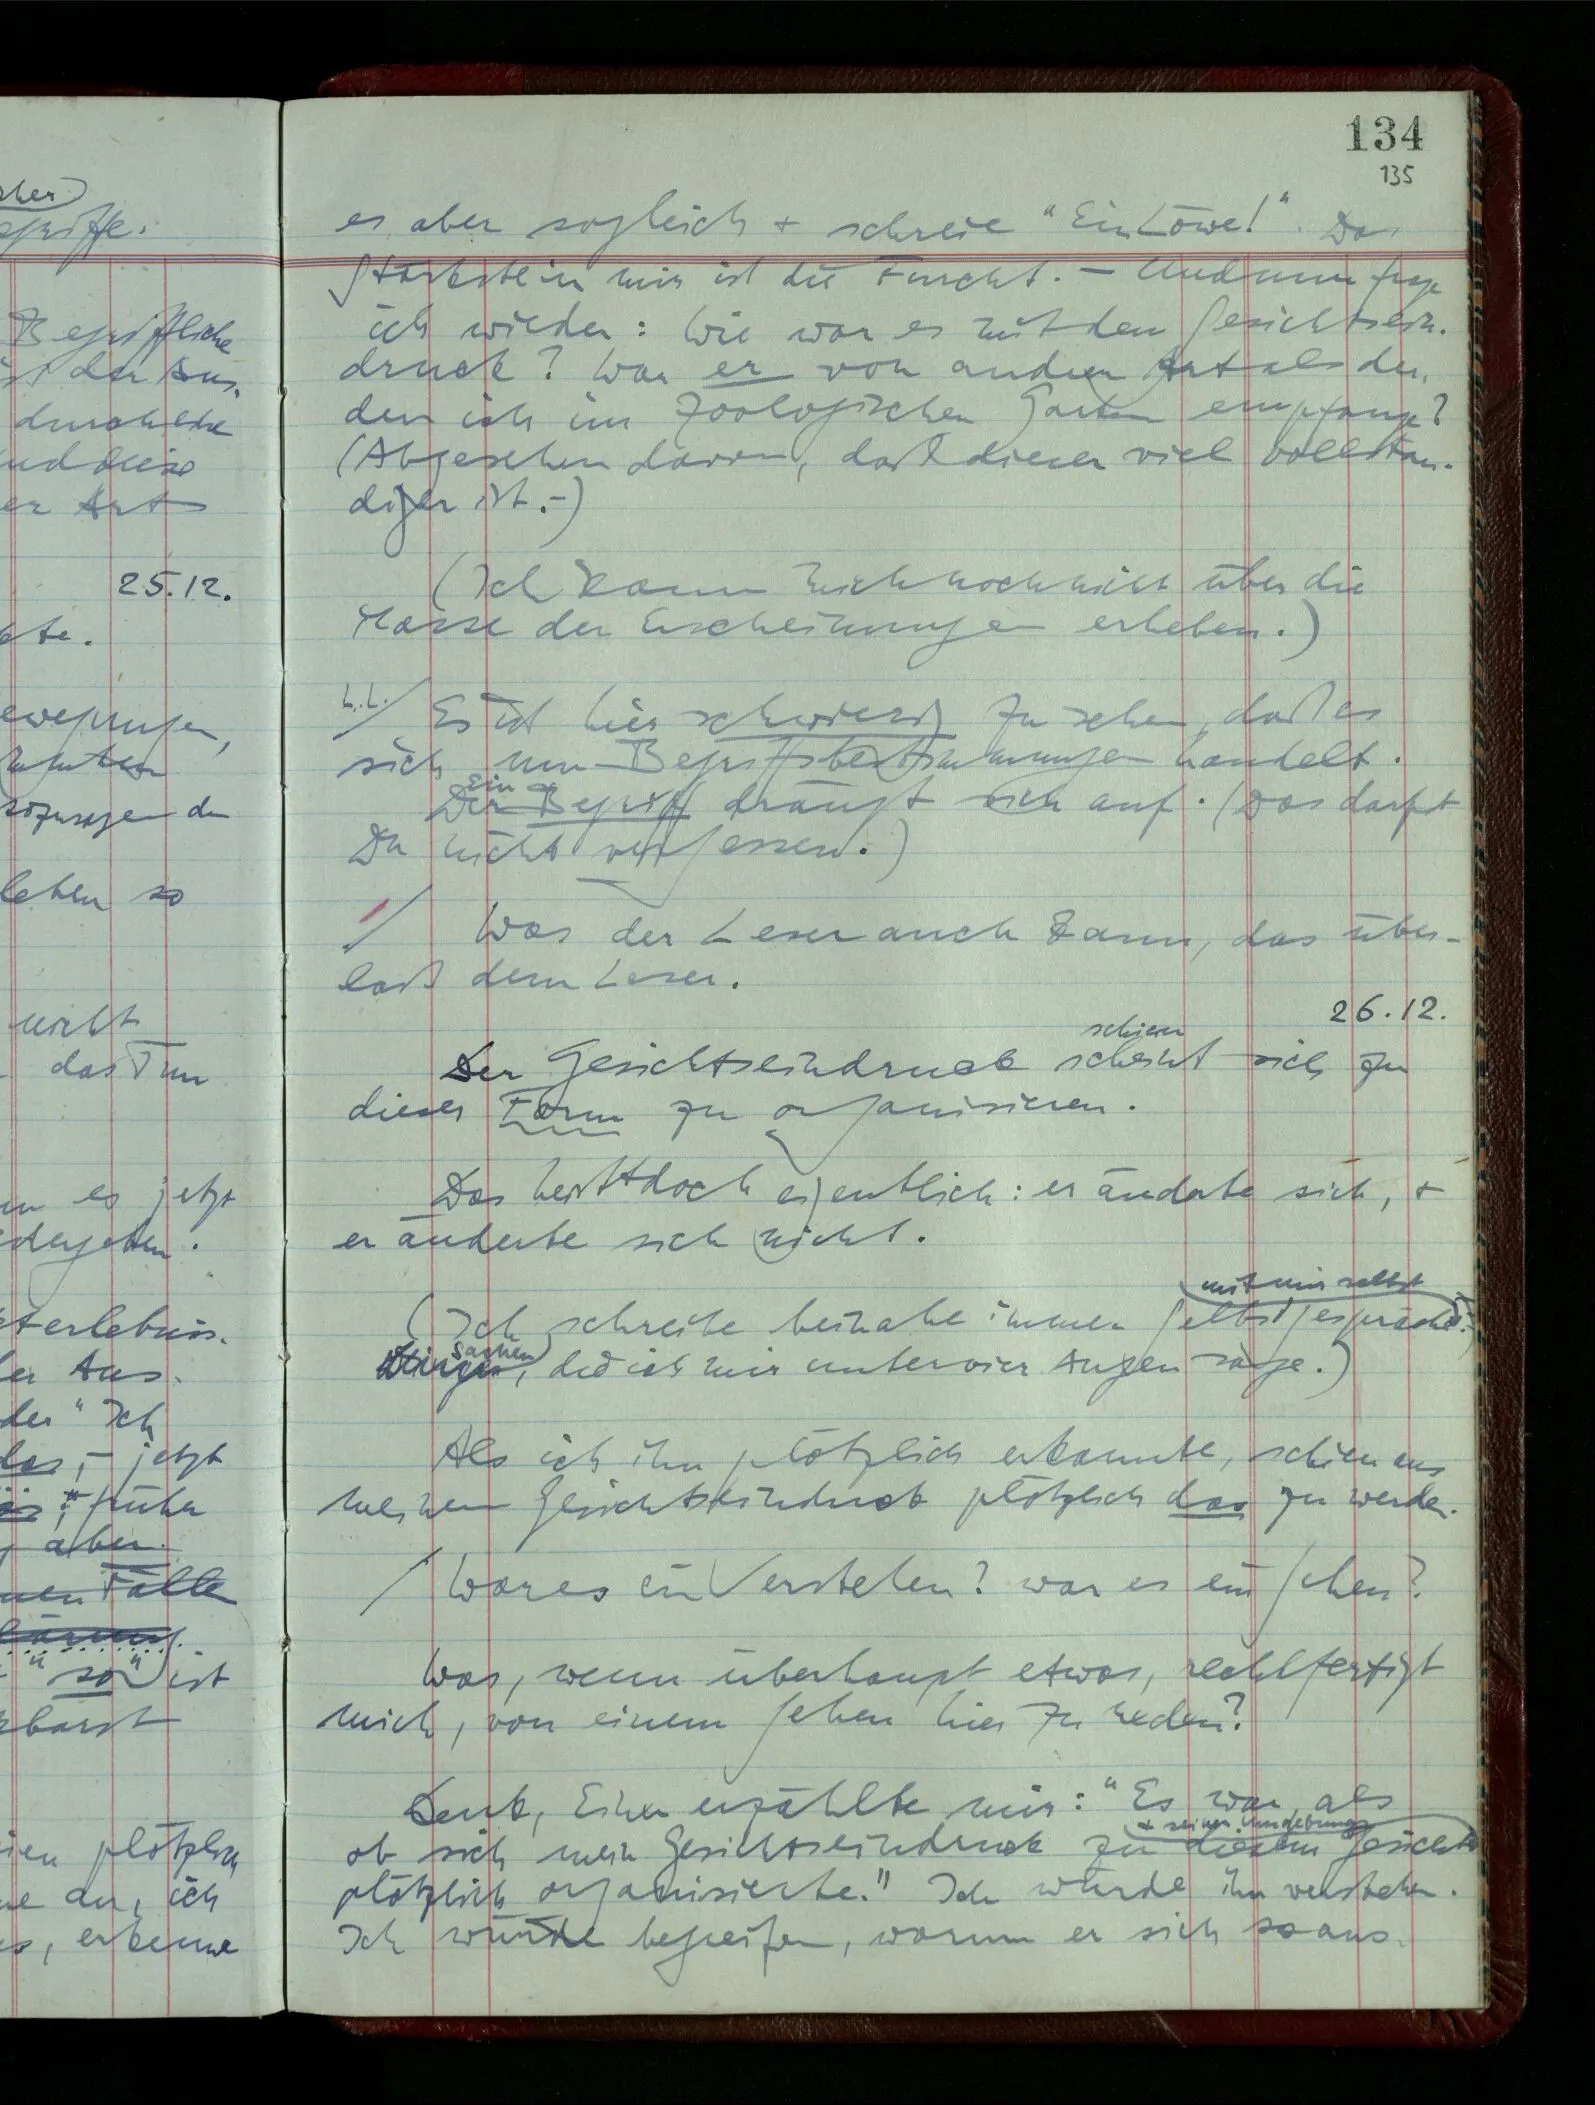 cher
griffe.
Begriffliche
ist der Aus-
durch eine
und diese
er Art
25.12.
te.
ewegungen,
sozusagen da
leben so
nicht
das Tun
es jetzt
dergeben.
terlebnis.
der Aus-
der "Ich
das, – jetzt
früher
aber
nen Fälle
"so" ist
rbarst
ien plötzlich
an, ich
erkenne
134
135
es aber sogleich + schreie "Ein Löwe!". Das
Stärkste in mir ist die Furcht. – Und nun frage
ich wieder: Wie war es mit dem Gesichtsein-
druck? War er von andrer Art als der,
den ich im Zoologischen Garten empfange?
(Abgesehen davon, daß dieser viel vollstän-
diger ist. –)
(Ich kann mich noch nicht über die
Masse der Erscheinungen erheben.)
/ Es ist hier schwierig zu sehen, daß es
sich um Begriffsbestimmungen handelt.
Ein
Der Begriff drängt sich auf. (Das darfst
Du nicht vergessen.)
/ Was der Leser auch kann, das über-
laß dem Leser.
26.12.
schien
Der Gesichtseindruck scheint sich zu
dieser Form zu organisieren.
Das heißt doch eigentlich: er änderte sich, +
er änderte sich nicht.
mit mir selbst
(Ich schreibe beinahe immer Selbstgespräche.
Sachen
Dinge, die ich mir unter vier Augen sage.)
Als ich ihn plötzlich erkannte, schien aus
meinem Gesichtseindruck plötzlich das zu werden.
/ War es ein Verstehen? war es ein Sehen?
Was, wenn überhaupt etwas, rechtfertigt
mich, von einem Sehen hier zu reden?
Denk, Einer erzählte mir: "Es war als
+ seiner Umgebung
ob sich mein Gesichtseindruck zu diesem Gesicht
plötzlich organisierte." Ich würde ihn verstehen.
Ich würde begreifen, warum er sich so aus-